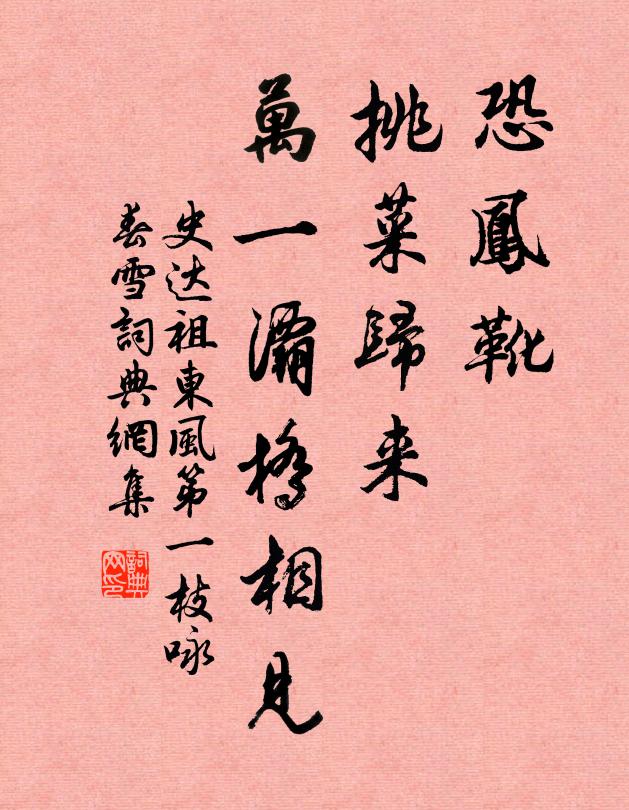 恐鳳靴
挑菜歸来
萬一灞橋相見
史达祖東風第一枝咏
春雪詞典網集
詞典網印